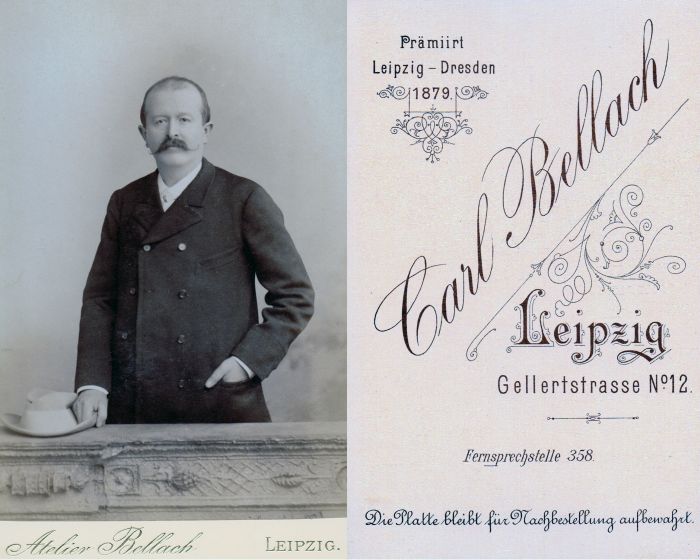 Atelier Bellach LEIPZIG.
Prämiirt
Leipzig - Dresden
1879.
Carl Bellach
Leipzig
Gellertstrasse No. 12.
Fernsprechstelle 358.
Die Platte bleibt für Nachbestellung aufbewahrt.